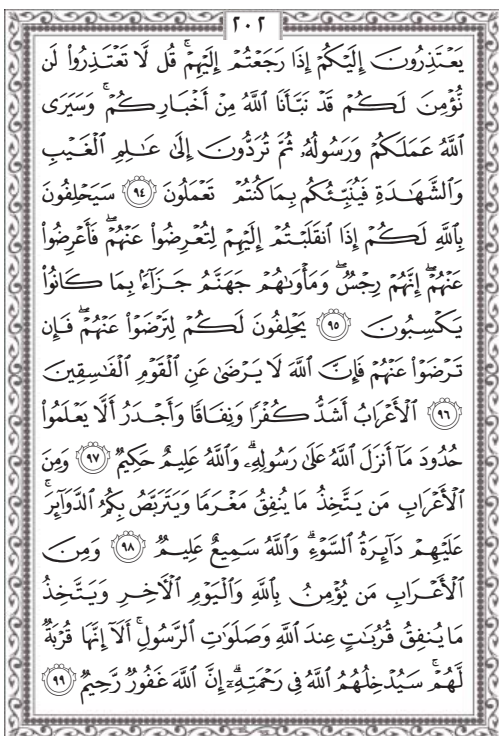 ٢٠٢
يَعْتَذِرُونَ إِلَيْكُمْ إِذَا رَجَعْتُمْ إِلَيْهِمْ ۚ قُل لَّا تَعْتَذِرُوا۟ لَن
نُّؤْمِنَ لَكُمْ قَدْ نَبَّأَنَا ٱللَّهُ مِنْ أَخْبَارِكُمْ ۚ وَسَيَرَى
ٱللَّهُ عَمَلَكُمْ وَرَسُولُهُۥ ثُمَّ تُرَدُّونَ إِلَىٰ عَـٰلِمِ ٱلْغَيْبِ
وَٱلشَّهَـٰدَةِ فَيُنَبِّئُكُم بِمَا كُنتُمْ تَعْمَلُونَ ﴿٩٤﴾ سَيَحْلِفُونَ
بِٱللَّهِ لَكُمْ إِذَا ٱنقَلَبْتُمْ إِلَيْهِمْ لِتُعْرِضُوا۟ عَنْهُمْ ۖ فَأَعْرِضُوا۟
عَنْهُمْ ۖ إِنَّهُمْ رِجْسٌ ۖ وَمَأْوَىٰهُمْ جَهَنَّمُ جَزَآءًۢ بِمَا كَانُوا۟
يَكْسِبُونَ ﴿٩٥﴾ يَحْلِفُونَ لَكُمْ لِتَرْضَوْا۟ عَنْهُمْ ۖ فَإِن
تَرْضَوْا۟ عَنْهُمْ فَإِنَّ ٱللَّهَ لَا يَرْضَىٰ عَنِ ٱلْقَوْمِ ٱلْفَـٰسِقِينَ
﴿٩٦﴾ ٱلْأَعْرَابُ أَشَدُّ كُفْرًا وَنِفَاقًا وَأَجْدَرُ أَلَّا يَعْلَمُوا۟
حُدُودَ مَآ أَنزَلَ ٱللَّهُ عَلَىٰ رَسُولِهِۦ ۗ وَٱللَّهُ عَلِيمٌ حَكِيمٌ ﴿٩٧﴾ وَمِنَ
ٱلْأَعْرَابِ مَن يَتَّخِذُ مَا يُنفِقُ مَغْرَمًا وَيَتَرَبَّصُ بِكُمُ ٱلدَّوَآئِرَ ۚ
عَلَيْهِمْ دَآئِرَةُ ٱلسَّوْءِ ۗ وَٱللَّهُ سَمِيعٌ عَلِيمٌ ﴿٩٨﴾ وَمِنَ
ٱلْأَعْرَابِ مَن يُؤْمِنُ بِٱللَّهِ وَٱلْيَوْمِ ٱلْـَٔاخِرِ وَيَتَّخِذُ
مَا يُنفِقُ قُرُبَـٰتٍ عِندَ ٱللَّهِ وَصَلَوَٰتِ ٱلرَّسُولِ ۚ أَلَآ إِنَّهَا قُرْبَةٌ
لَّهُمْ ۚ سَيُدْخِلُهُمُ ٱللَّهُ فِى رَحْمَتِهِۦٓ ۗ إِنَّ ٱللَّهَ غَفُورٌ رَّحِيمٌ ﴿٩٩﴾